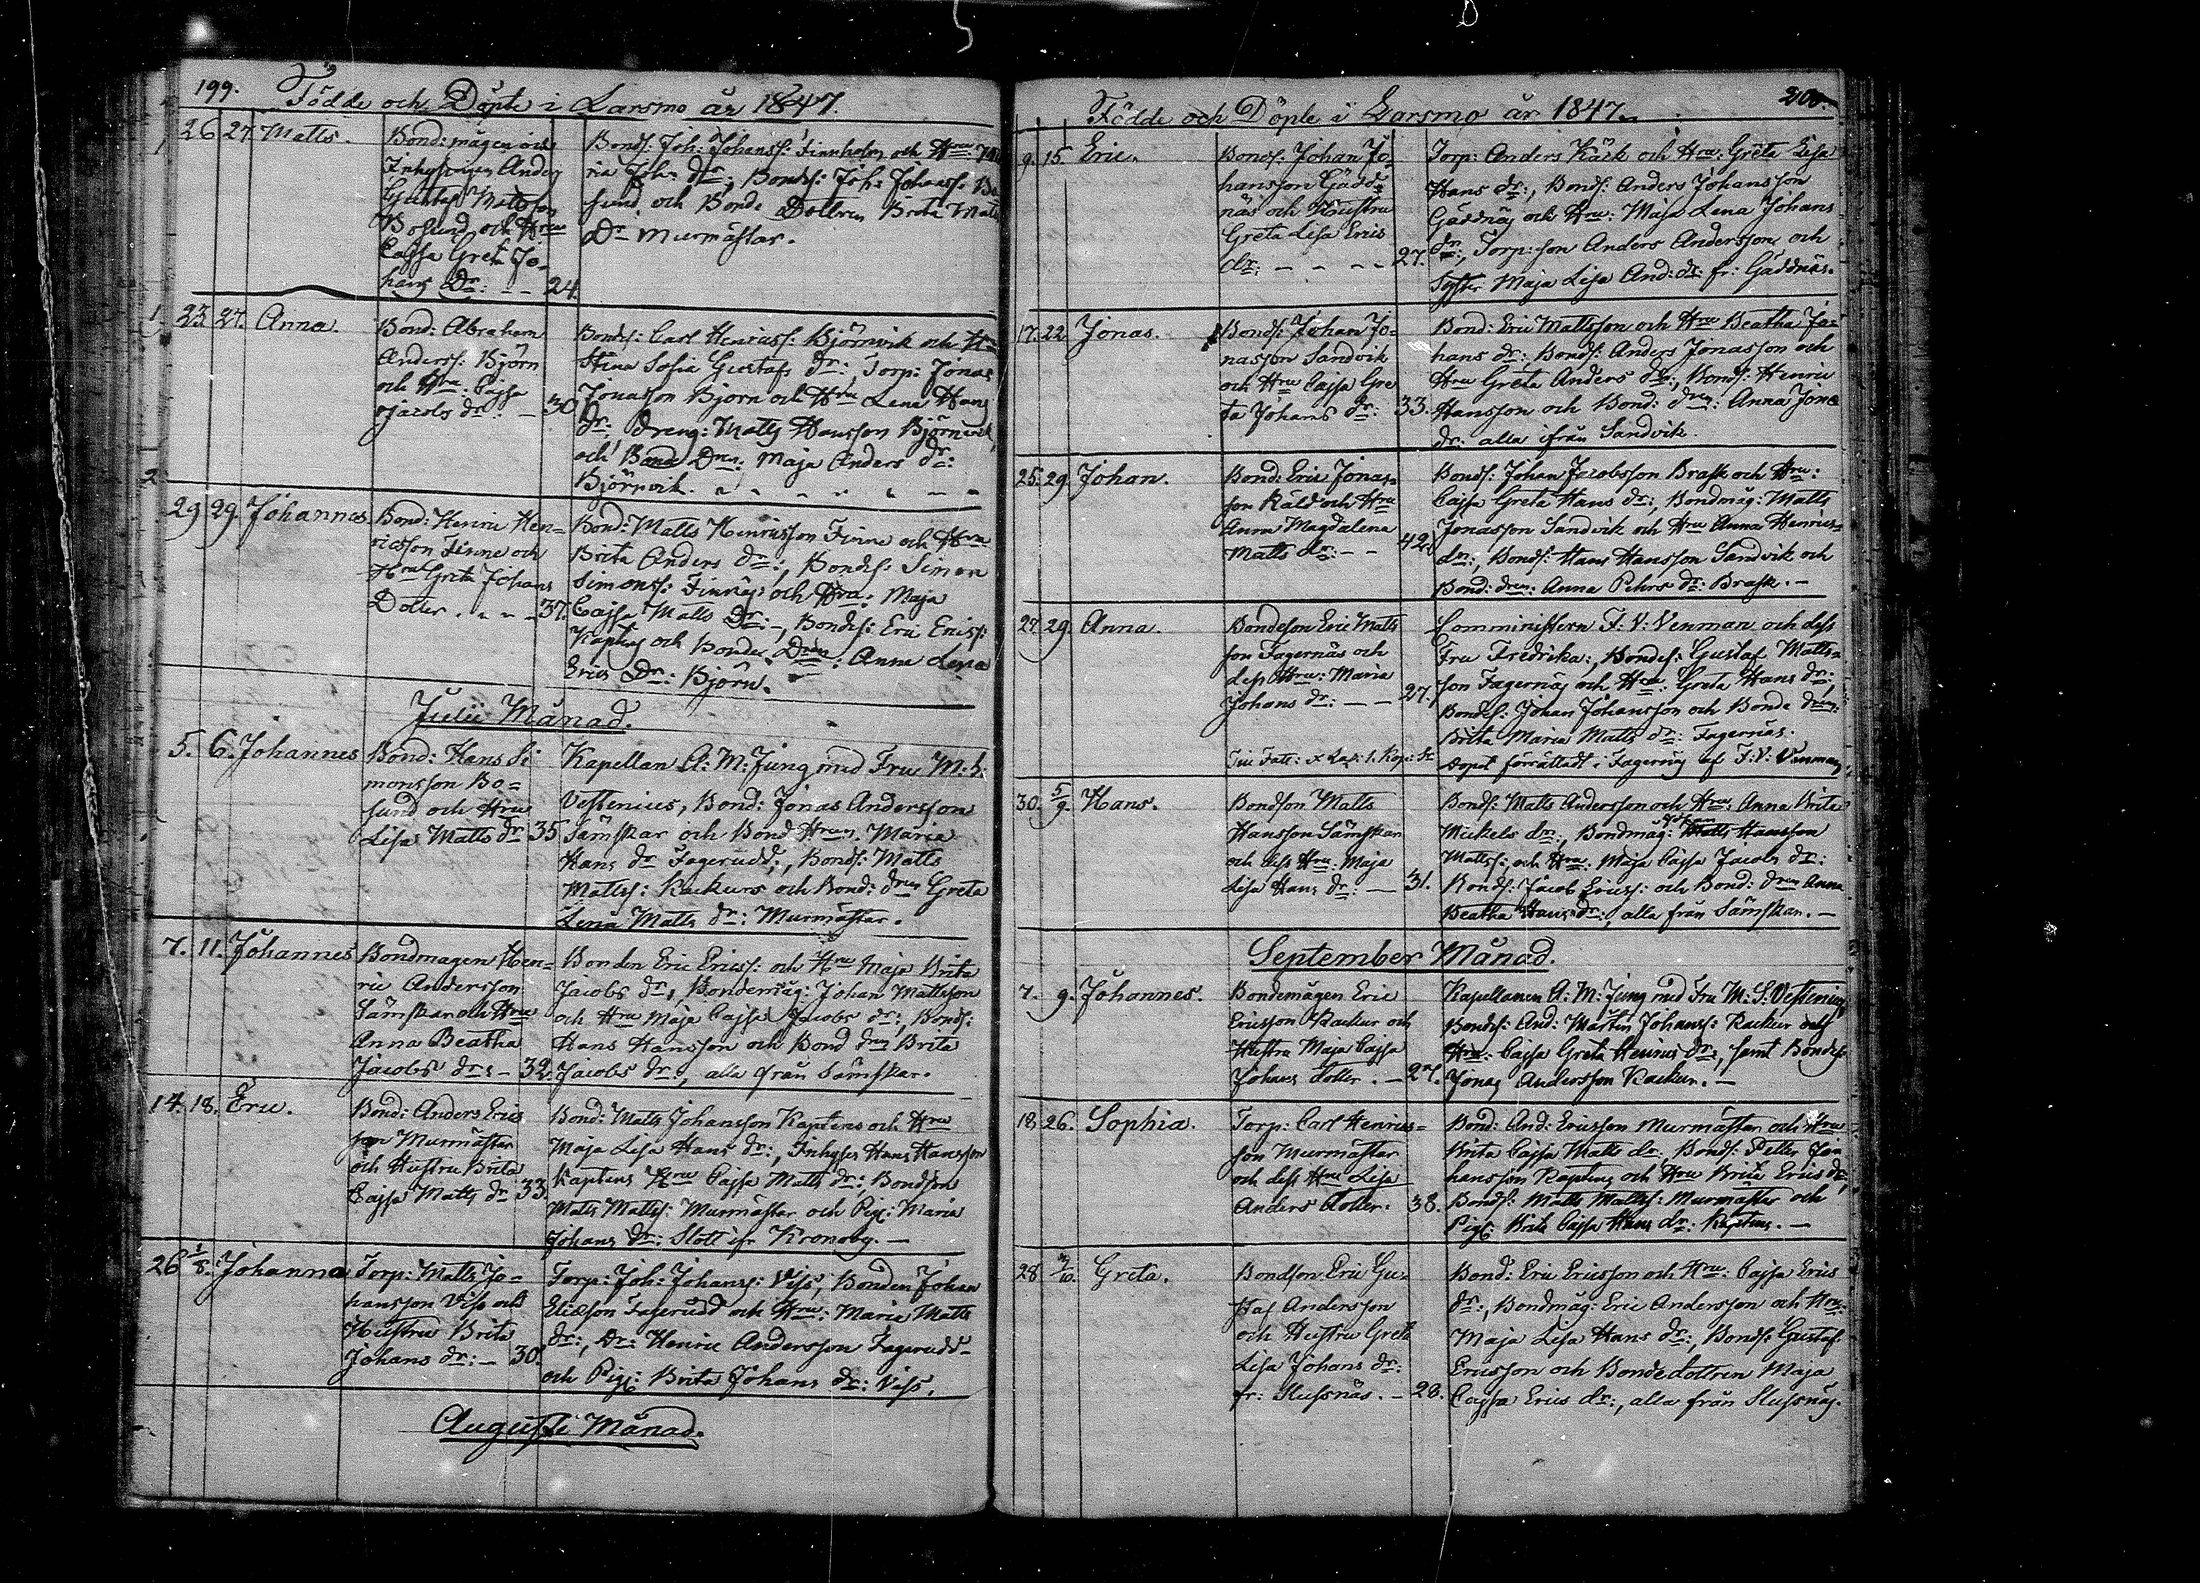 199.
Födde och Döpte i Larsmo år 1847.
26 27. Matts.
Bond: mågen och
Inhysingen Anders
Gustaf Mattsson
Bosund och Hru
Cajsa Greta Jo-
hans Dr: - - 24.
Bonds: Joh: Johanss: Finnholm och Hru
ria Joh: dr:, Bondes: Joh: Johanss: Bo
sund och Bonde Dottren Brita Matts
Dr Murmästar.
23. 27. Anna.
Bond: Abraham
Anderss: Björn
och Hru. Cajsa
Jacobs dr: - 30.
Bondes: Carl Henricss: Björnvik och H=
Stina Sofia Gustafs dr:, Torp: Jonas
Jonasson Björn och Hru Lena Hans
dr:, dreng: Matts Hansson Björnvik,
och Bond Dren: Maja Anders dr:
Björnvik.
29 29. Johannes
Bond: Henric Hen=
ricsson Finne och
Hru Greta Johans
Dotter. - - - 37.
Bond: Matts Henricsson Finne och Hru
Brita Anders dr:, Bondes: Simon
Simonss: Finnäs och Hru: Maja
Cajsa Matts Dr: -, Bondes: Eric Ericss:
Kaptens och Bonde Dren: Anna Lena
Erics Dr: Björn.
Julii Månad.
5. 6. Johannes
Bond: Hans Si
monsson Bo=
sund och Hru
Lisa Matts dr 35
Kapellan A: M: Jung med Fru M: S.
Vestenius, Bond: Jonas Andersson
Sämskar och Bond Hrun Maria
Hans dr Fagerudd:, Bonds: Matts
Mattss: Kackurs och Bond: dren Greta
Lena Matts dr: Murmästar.
7. 11. Johannes
Bondmagen Hen=
ric Andersson
Sämskar och Hru
Anna Beatha
Jacobs dr: - 32.
Bonden Eric Ericss: och Hru Maja Brita
Jacobs dr:, Bondemåg: Johan Mattsson
och Hru Maja Cajsa Jacobs dr:, Bonds:
Hans Hansson och Bond dren Brita
Jacobs dr:, alla från Sämskar.
14. 18. Eric.
Bond: Anders Erics
son Murmästar
och Hustru Brita
Cajsa Matts dr 33.
Bond: Matts Johansson Kaptens och Hru
Maja Lisa Hans dr:, Inhyses Hans Hansson
Kaptens Hru Cajsa Matts dr:, Bondson
Matts Mattss: Murmästar och Pig: Maria
Johans dr: Slott ifr Kronoby. -
26 1/8. Johanna
Torp: Matts Jo=
hansson Viss och
Hustru Brita
Johans dr: - 30.
Torp: Joh: Johanss: Viss, Bonden Johan
Ericsson Fagerudd och Hru: Maria Matts
dr:, Dr: Henric Andersson Fagerudd-
och Pig: Brita Johans dr: Viss.
Augusti Månad.
200.
Födde och Döpte i Larsmo år 1847.
9. 15. Eric.
Bonds: Johan Jo-
hansson Gädd=
näs och Hustru
Greta Lisa Erics
dr: - - - - 27.
Torp: Anders Käck och Hru: Greta Lisa
Hans dr:, Bonds: Anders Johansson
Gäddnäs och Hru: Maja Lena Johans
dr:, Torp: son Anders Andersson och
Syster Maja Lisa And: dr: fr: Gäddnäs.
17. 22. Jonas.
Bonds: Johan Jo-
nasson Sandvik
och Hru Cajsa Gre
ta Johans dr: 33.
Bond: Eric Mattsson och Hru Beatha Jo-
hans dr:, Bonds: Anders Jonasson och
Hru Greta Anders dr:, Bonds: Henric
Hansson och Bond: dren: Anna Jona
dr: alla ifrån Sandvik.
25. 29. Johan.
Bond: Eric Jonas-
son Käld och Hru
Anna Magdalena
Matts dr: - - 42.
Bonds: Johan Jacobsson Brask och Hru:
Cajsa Greta Hans dr:, Bondmåg: Matts
Jonasson Sandvik och Hru Anna Henrics-
dr:, Bonds: Hans Hansson Sandvik och
Bond: dren: Anna Pehrs dr: Brask. -
27. 29. Anna.
Bondeson Eric Matts
son Fagernäs och
dess Hru: Maria
Johans dr: - - 27.
Comministern F: V: Venman och dess
Fru Fredrika:, Bondes: Gustaf Matts=
son Fagernäs och Hru: Greta Hans dr:,
Bondes: Johan Johansson och Bonde dren:
Brita Maria Matts dr: Fagernäs.
Dopet förrättadt i Fagernäs af F: V: Venman
30. 5/9. Hans.
Bondson Matts
Hansson Sämskar
och dess Hru: Maja
Lisa Hans dr: - 31.
Bonds: Matts Andersson och Hru: Anna Brita
Mickels dr:, Bondmåg: Matts Hansson
Mattss: och Hru: Maja Cajsa Jacobs dr:
Bonds: Jacob Ericss: och Bond: dren Anna
Beatha Hans dr:, alla från Sämskar. -
September Månad.
7. 9. Johannes.
Bondemågen Eric
Ericsson Kackur och
Hustru Maja Cajsa
Johans dotter. - 27.
Kapellanen A: M: Jung med Fru M: S: Vestenius,
Bondes: And: Martin Johanss: Kackur och
Hru: Cajsa Greta Henrics dr:, samt Bondes:
Jonas Andersson Kackur. -
18. 26. Sophia.
Torp: Carl Henrics=
son Murmästar
och dess Hru Lisa
Anders dotter. 38.
Bond: And: Ericsson Murmästar och Hru
Brita Cajsa Matts dr:, Bonds: Petter Jo
hansson Kaptens och Hru Brita Erics dr:,
Bonds: Matts Mattss: Murmästar och
Pig: Brita Cajsa Hans dr: Kaptens. -
28 /10. Greta.
Bondson Eric Gu=
staf Andersson
och Hustru Greta
Lisa Johans dr:
fr: Slussnäs. - 28.
Bond: Eric Ericsson och Hru: Cajsa Erics
dr:, Bondmåg: Eric Andersson och Hru:
Maja Lisa Hans dr:, Bonds: Gustaf
Ericsson och Bondedottren Maja
Cajsa Erics dr:, alla från Slussnäs.